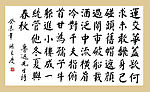 運交華蓋欲何
求未敢翻身已
碰頭破帽遮顏
過鬧市漏船載
酒泛中流橫眉
冷對千夫指俯
首甘為孺子牛
躲進小樓成一
統管他冬夏與
春秋